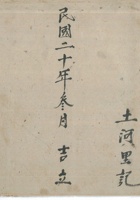 土河里記
民國二十年叁月 吉立